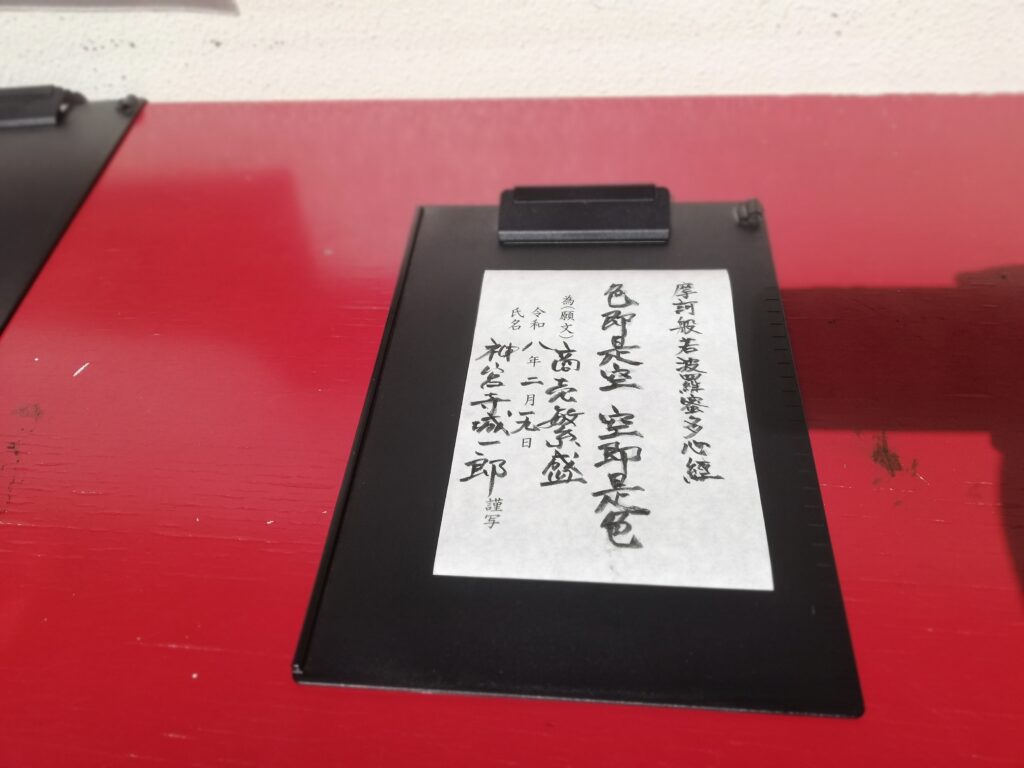 摩訶般若波羅蜜多心経
色即是空 空即是色
為(願文)商売繁盛
令和八年二月一九日
氏名 神宮寺城一郎 謹写